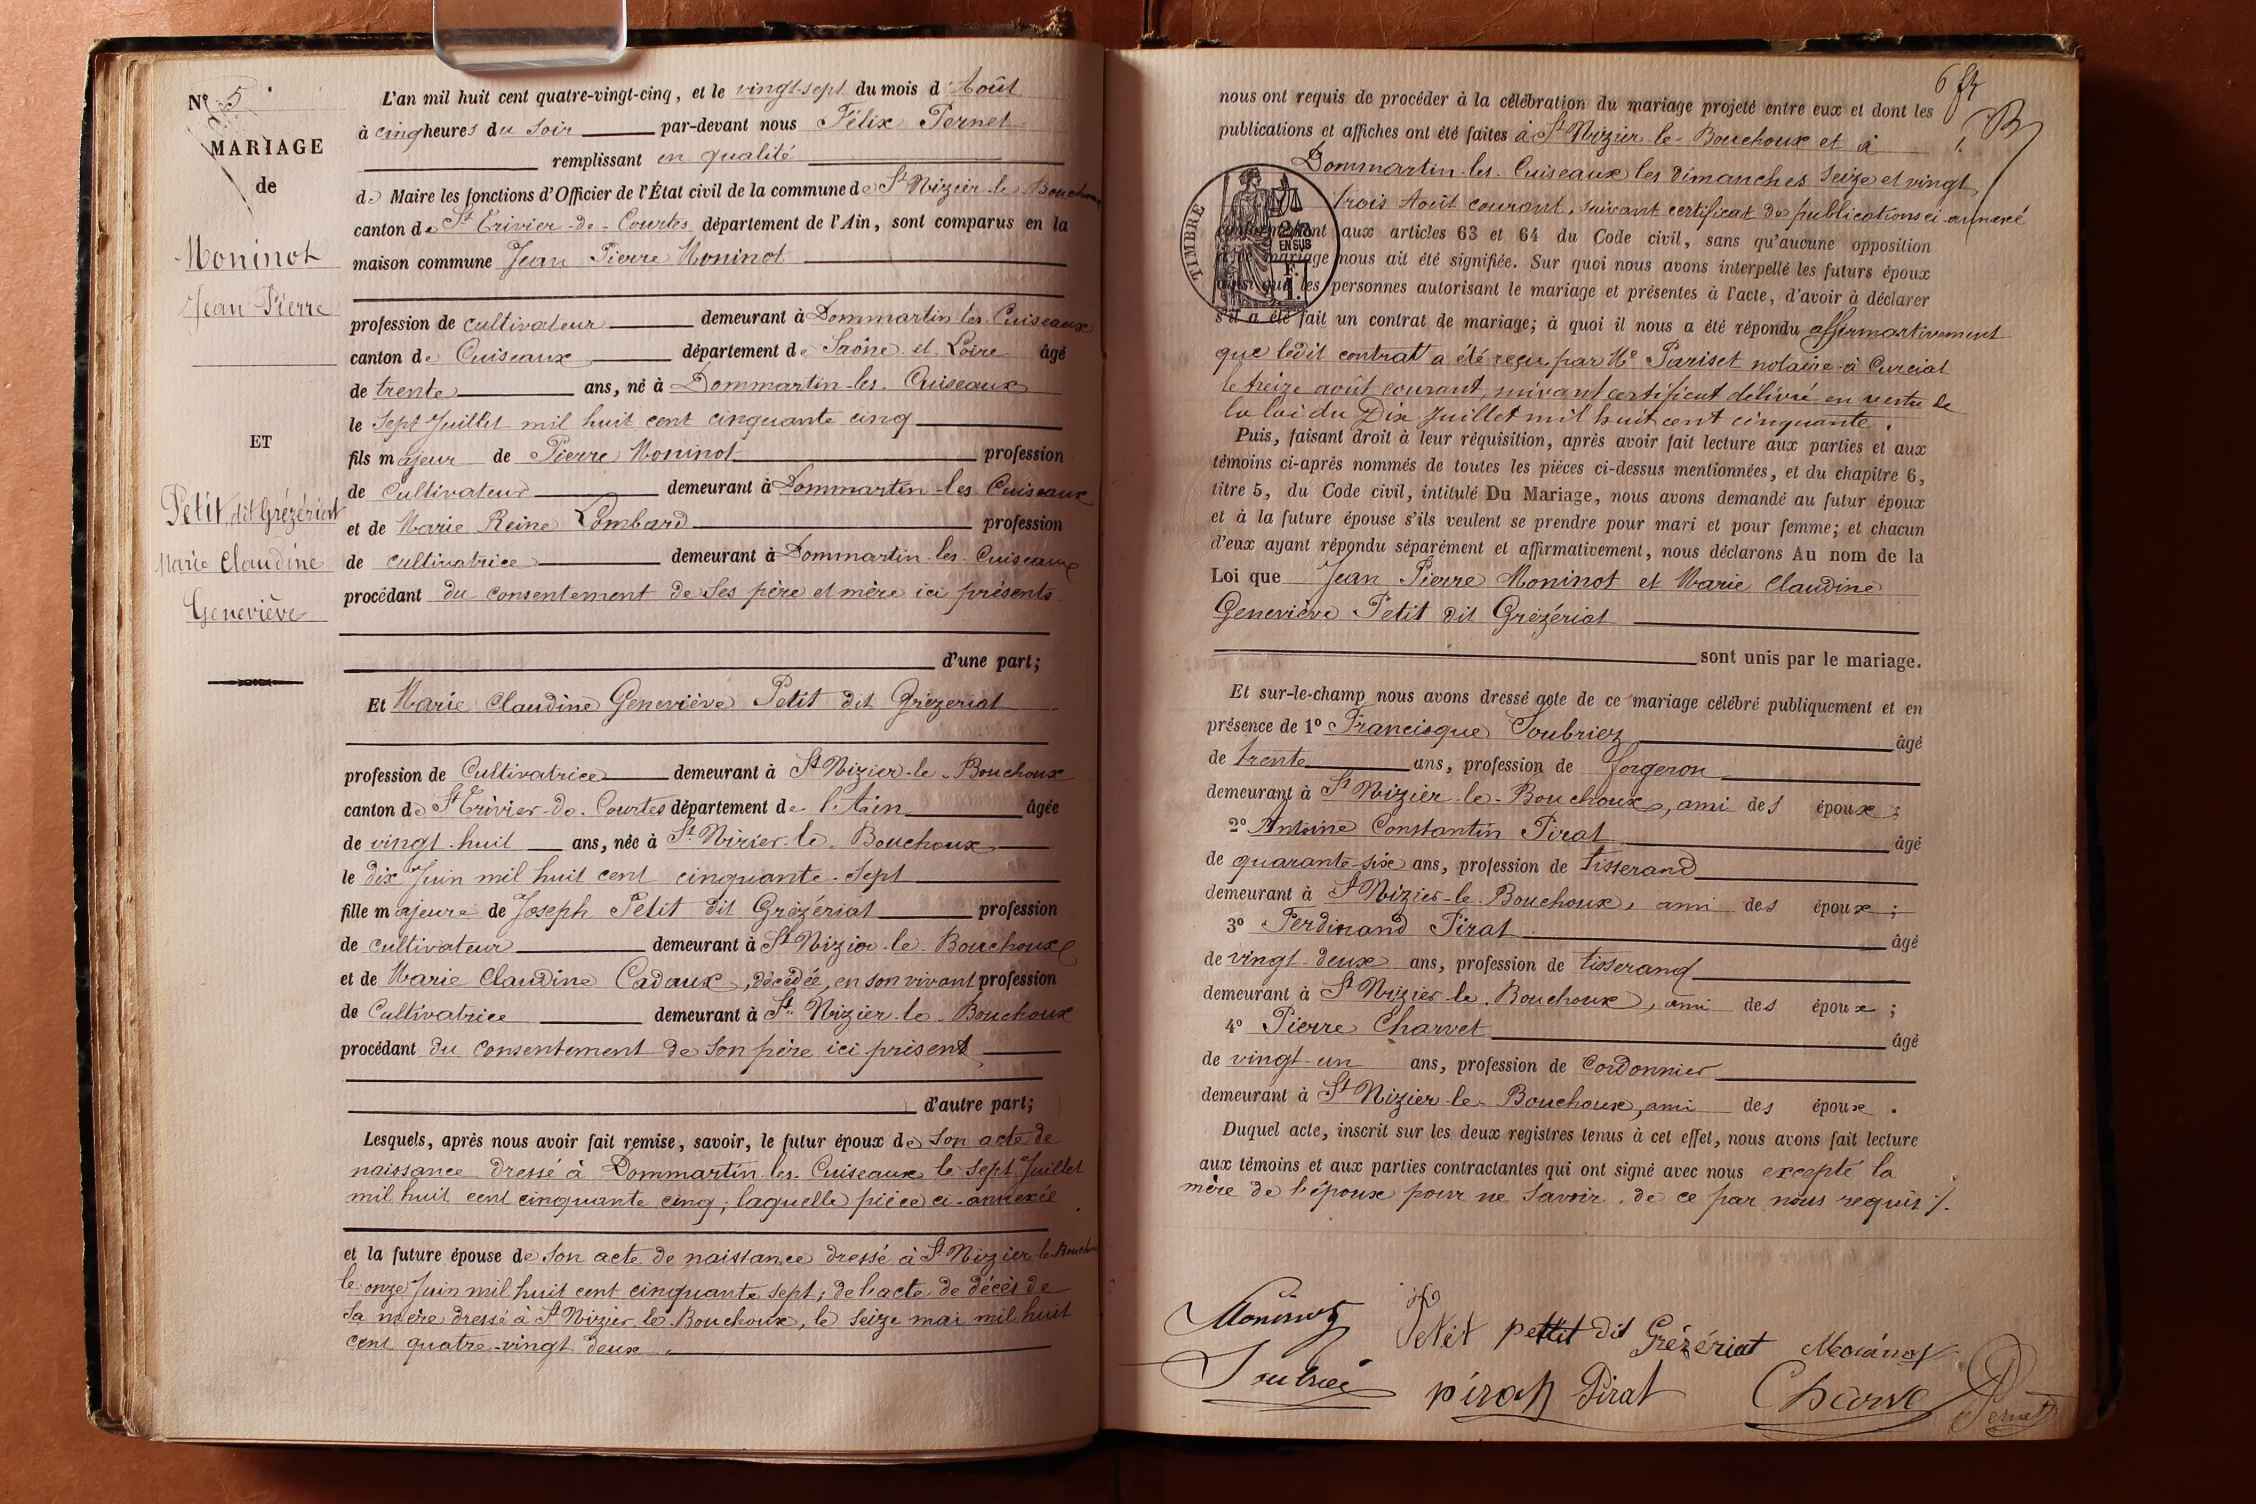 Nº 5
MARIAGE
de
Moninot
Jean Pierre
ET
Petit dit Grézériat
Marie Claudine
Geneviève
L'an mil huit cent quatre-vingt-cinq, et le vingt-sept du mois d'Août
à cinq heures du soir par-devant nous Félix Pernet
remplissant en qualité
de Maire les fonctions d'Officier de l'État civil de la commune de St Nizier-le-Bouchoux
canton de St Trivier-de-Courtes département de l'Ain, sont comparus en la
maison commune Jean Pierre Moninot
profession de cultivateur demeurant à Dommartin-les-Cuiseaux
canton de Cuiseaux département de Saône et Loire âgé
de trente ans, né à Dommartin-les-Cuiseaux
le sept Juillet mil huit cent cinquante cinq
fils majeur de Pierre Moninot profession
de Cultivateur demeurant à Dommartin-les-Cuiseaux
et de Marie Reine Lombard profession
de cultivatrice demeurant à Dommartin-les-Cuiseaux
procédant du consentement de ses père et mère ici présents
d'une part;
Et Marie Claudine Geneviève Petit dit Grézeriat
profession de Cultivatrice demeurant à St Nizier-le-Bouchoux
canton de St Trivier-de-Courtes département de l'Ain âgée
de vingt-huit ans, née à St Nizier-le-Bouchoux
le dix Juin mil huit cent cinquante-sept
fille majeure de Joseph Petit dit Grézériat profession
de cultivateur demeurant à St Nizier-le-Bouchoux
et de Marie Claudine Cadaux, décédée, en son vivant profession
de Cultivatrice demeurant à St Nizier-le-Bouchoux
procédant du consentement de son père ici présent
d'autre part;
Lesquels, après nous avoir fait remise, savoir, le futur époux de son acte de
naissance dressé à Dommartin-les-Cuiseaux le sept Juillet
mil huit cent cinquante cinq; laquelle pièce ci-annexée
et la future épouse de son acte de naissance dressé à St Nizier-le-Bouchoux
le onze Juin mil huit cent cinquante sept; de l'acte de décès de
sa mère dressé à St Nizier-le-Bouchoux, le seize mai mil huit
cent quatre-vingt deux.
nous ont requis de procéder à la célébration du mariage projeté entre eux et dont les
publications et affiches ont été faites à St Nizier-le-Bouchoux et à
Dommartin-les-Cuiseaux les dimanches seize et vingt
trois Août courant, suivant certificat de publications ci annexé
TIMBRE
2/10
EN SUB
conformément aux articles 63 et 64 du Code civil, sans qu'aucune opposition
à ce mariage nous ait été signifiée. Sur quoi nous avons interpellé les futurs époux
ainsi que les personnes autorisant le mariage et présentes à l'acte, d'avoir à déclarer
s'il a été fait un contrat de mariage; à quoi il nous a été répondu affirmativement
que ledit contrat a été reçu par Me Pariset notaire à Curciat
le treize août courant, suivant certificat délivré en vertu de
la loi du Dix Juillet mil huit cent cinquante.
Puis, faisant droit à leur réquisition, après avoir fait lecture aux parties et aux
témoins ci-après nommés de toutes les pièces ci-dessus mentionnées, et du chapitre 6,
titre 5, du Code civil, intitulé Du Mariage, nous avons demandé au futur époux
et à la future épouse s'ils veulent se prendre pour mari et pour femme; et chacun
d'eux ayant répondu séparément et affirmativement, nous déclarons Au nom de la
Loi que Jean Pierre Moninot et Marie Claudine
Geneviève Petit dit Grézériat
sont unis par le mariage.
Et sur-le-champ nous avons dressé acte de ce mariage célébré publiquement et en
présence de 1º Francisque Soubriez âgé
de trente ans, profession de forgeron
demeurant à St Nizier-le-Bouchoux, ami des époux;
2º Antoine Constantin Pirat âgé
de quarante-six ans, profession de tisserand
demeurant à St Nizier-le-Bouchoux, ami des époux;
3º Ferdinand Pirat âgé
de vingt-deux ans, profession de tisserand
demeurant à St Nizier-le-Bouchoux, ami des époux;
4º Pierre Charvet âgé
de vingt-un ans, profession de Cordonnier
demeurant à St Nizier-le-Bouchoux, ami des époux.
Duquel acte, inscrit sur les deux registres tenus à cet effet, nous avons fait lecture
aux témoins et aux parties contractantes qui ont signé avec nous excepté la
mère de l'époux pour ne savoir, de ce par nous requis /.
Moninot Petit petit dit Grézériat Moninot
pirat Pirat Pernet